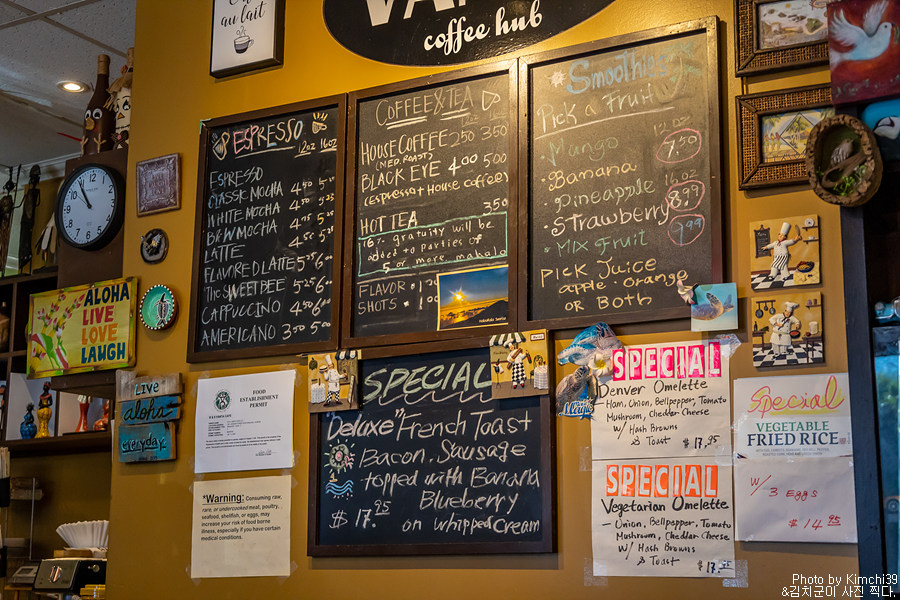 Café
au lait
VA
coffee hub
ESPRESSO
12oz 16oz
ESPRESSO
CLASSIC MOCHA 4.50
WHITE MOCHA 4.50
B&W MOCHA 4.50
LATTE 4.50
FLAVORED LATTE 5.25 6.00
THE SWEET BEE 5.25 6.00
CAPPUCCINO 4.50 6.00
AMERICANO 3.00 5.00
COFFEE & TEA
12oz 16oz
HOUSE COFFEE 2.50 3.50
(MED. ROAST)
BLACK EYE 4.00 5.00
(espresso + House coffee)
HOT TEA 3.50
16% gratuity will be
added to parties of
5 or more. mahalo
FLAVOR
SHOTS
Smoothies
Pick a Fruit
12oz
• Mango 7.50
• Banana
• Pineapple 16oz
• Strawberry 8.99
• MIX Fruit 9.99
Pick Juice
apple • orange
or Both
ALOHA
LIVE
LOVE
LAUGH
Live
aloha
everyday
FOOD
ESTABLISHMENT
PERMIT
*Warning: Consuming raw,
rare, or undercooked meat, poultry,
seafood, shellfish, or eggs, may
increase your risk of food borne
illness, especially if you have certain
medical conditions
SPECIAL
Deluxe" French Toast
Bacon. Sausage
topped with Banana
Blueberry
$ 17.25 on whipped cream
SPECIAL
Denver Omelette
- Ham, Onion, Bellpepper, Tomato
Mushroom, Chedder Cheese
W/ Hash Browns
& Toast $17.95
SPECIAL
Vegetarian Omelette
- Onion, Bellpepper, Tomato
Mushroom, Chedder Cheese
W/ Hash Browns
& Toast $17.25
Special
VEGETABLE
FRIED RICE
W/
3 Eggs
$ 14.95
Photo by Kimchi39
&김치군이 사진 찍다.